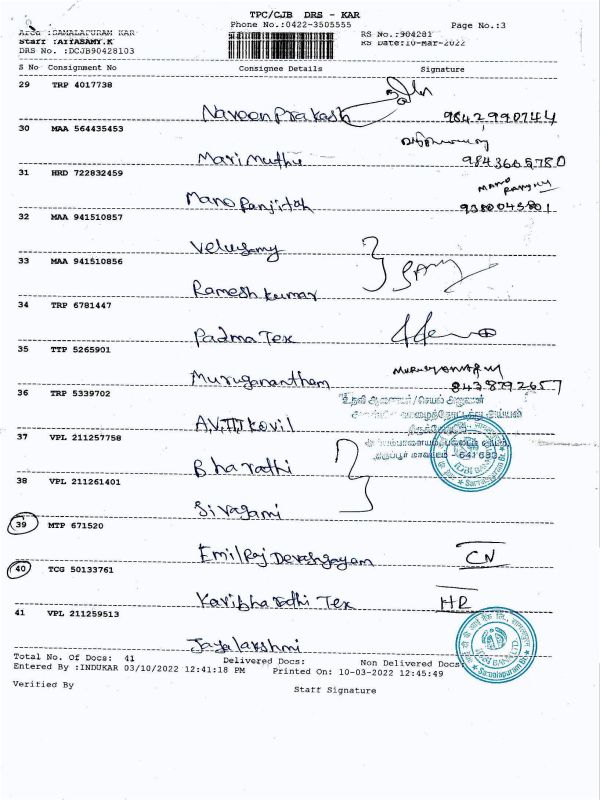 TPC/CJB DRS - KAR
Phone No.:0422-3505555 Page No.:3
Area :SAMALAPURAM KAR RS No.:904281
Staff :AIYASAMY.K RS Date:10-Mar-2022
DRS No. :DCJB90428103
S No Consignment No Consignee Details Signature
29 TRP 4017738
Naveen Prakash 9842990744
30 MAA 564435453
Marimuthu 9843665780
31 HRD 722832459
Mano Ranjitah
32 MAA 941510857
Velusamy
33 MAA 941510856
Ramesh kumar
34 TRP 6781447
Padma Tex
35 TTP 5265901
Muruganantham 8438792657
36 TRP 5339702
Kovil
37 VPL 211257758
Bharathi
38 VPL 211261401
Sivagami
39 MTP 671520
Emil Raj CN
40 TCG 50133761
Karibharathi Tex HR
41 VPL 211259513
Jayalakshmi
Total No. Of Docs: 41 Delivered Docs: Non Delivered Docs
Entered By :INDUKAR 03/10/2022 12:41:18 PM Printed On: 10-03-2022 12:45:49
Verified By Staff Signature